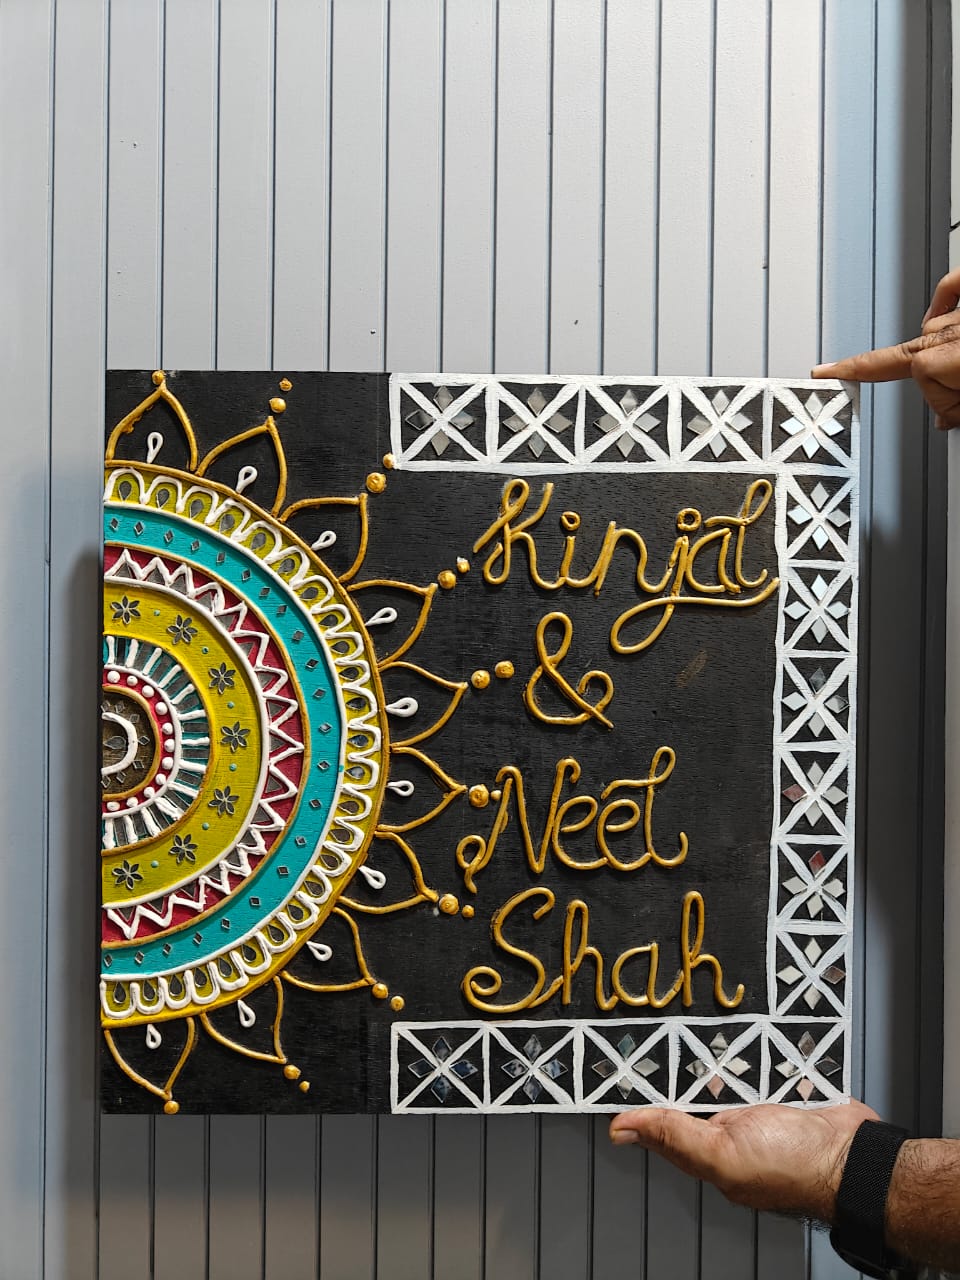 Kinjal
&
Neel
Shah